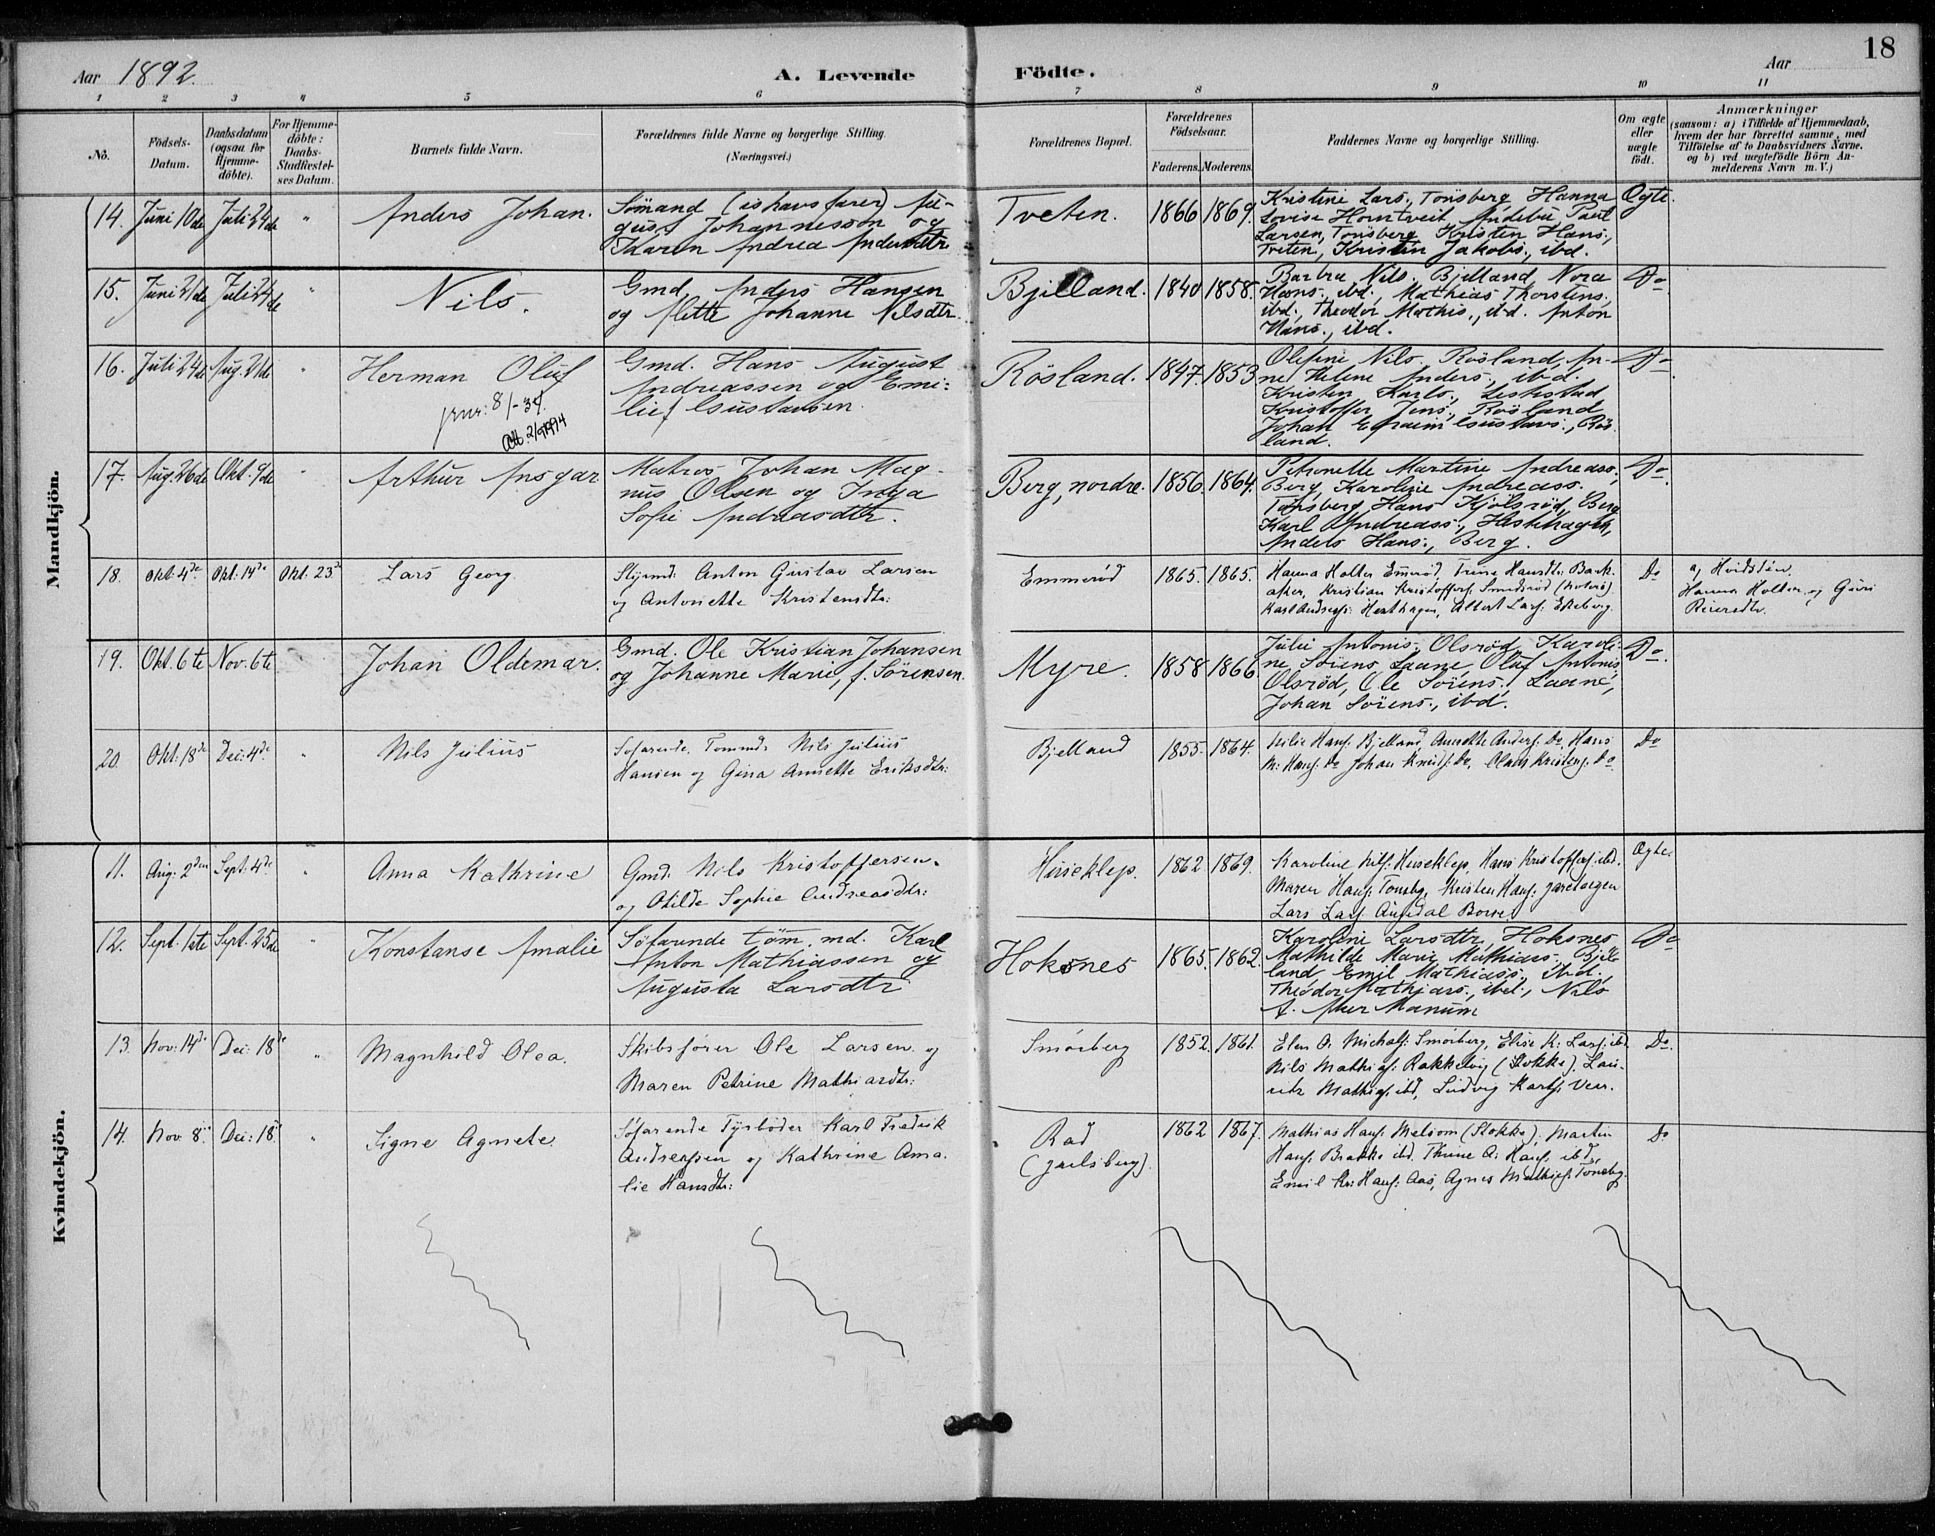 18
Aar 1892.
A. Levende Födte.
Aar
1 2 3 4 5 6 7 8 9 10 11
No.
Födsels-Datum.
Daabsdatum (ogsaa for Hjemme-döbte).
For Hjemme-döbte: Daabs-Stadfæstel-ses Datum.
Barnets fulde Navn.
Forældrenes fulde Navne og borgerlige Stilling.
(Næringsvei.)
Forældrenes Bopæl.
Forældrenes Födselsaar.
Faderens. Moderens.
Faddernes Navne og borgerlige Stilling.
Om ægte eller uægte födt.
Anmærkninger
(saasom: a) i Tilfælde af Hjemmedaab,
hvem der har forrettet samme, med
Tilföielse af to Daabsvidners Navne.
og b) ved uægtefödte Börn An-
melderens Navn m. V.)
Mandkjön.
14. Juni 10de Juli 24de " Anders Johan.
Sömand (ishavsfarer) Au-
gust Johannesson og
Karen Andrea Andersdtr.
Tveten. 1866 1869.
Kristine Lars., Tönsberg, Hanna
Lovise Homtveit, Andebu, Paul
Larsen, Tönsberg, Kristen Hans.,
Tveten, Kristen Jakobs., ibd.
Ægte.
15. Juni 21de Juli 24de " Nils.
Gmd. Anders Hansen
og Mette Johanne Nilsdtr.
Bjelland. 1840 1858.
Barbra Nils. Bjelland, Nora
Hans., ibd., Mathias Thorstens.,
ibd., Theodor Mathis., ibd. Anton
Hans., ibd.
Do
16. Juli 24de Aug. 21de " Herman Oluf
Gmd. Hans August
Andreassen og Emi-
lie f. Gustavsen.
Rösland. 1847. 1853
Olefine Nils., Rösland, An-
ne Helene Anders., ibd.
Kristen Karls.,
Kristoffer Jens., Rösland
Johan Efraim Gustavs., Rös
land.
Do
17. Aug. 26de Okt. 9de " Arthur Ansgar
Matros Johan Mag-
nus Olsen og Inga
Sofie Andreasdtr.
Berg, nordre. 1856. 1864.
Petronelle Martine Andreass.,
Berg, Karoline Andreass.
Tönsberg, Hans Kjölsröd, Berg
Karl Andreass., Hesthagen,
Anders Hans., Berg.
Do
18. Okt. 4de Okt: 14de Okt. 23d Lars Georg.
Styrmd: Anton Gustav Larsen
og Antonette Kristensdtr:
Emmeröd 1865. 1865.
Hanna Holter Emmeröd, Trine Hansdtr: Bak-
aker, Kristian Kristoffers: Smidsröd (Nöterö)
Karl Andreass: Hesthagen, Albert Lars: Ekeberg.
Do
Hanna Holter og Guri
Reiersdtr.
19. Okt. 6te Nov. 6te Johan Oldemar.
Gmd. Ole Kristian Johansen
og Johanne Marie, f. Sörensen.
Myre. 1858 1866
Julie Antonis. Olsröd, Karoli-
ne Sörens. Laane, Oluf Antonis
Olsröd, Ole Sörens., Laane,
Johan Sörens., ibd.
Do.
20. Okt: 18de Dec: 4de " Nils Julius
Söfarende Tommd: Nils Julius
Hansen og Gina Annette Eriksdtr:
Bjelland 1855. 1864.
Nilia Hans: Bjelland, Annette Anders: Do, Hans
M: Hans: Do Johan Knuds: Do, Olaus Kristens: Do
Do
Kvindekjön.
11. Aug. 2den Sept. 4de " Anna Kathrine
Gmd: Nils Kristoffersen
og Otilde Sophie Andreasdtr:
Huseklep. 1862 1869.
Karoline Nils: Huseklep, Hans Kristoffers: ibd.
Maren Hans: Tönsbg, Kristen Hans:
Lars Lars:
Ægte.
12. Sept. 1ste Sept. 25de " Konstanse Amalie
Söfarende töm.md. Karl
Anton Mathiassen og
Augusta Larsdtr
Hoksnes 1865. 1862.
Karoline Larsdtr, Hoksnes
Mathilde Marie Mathiass. Bjel-
land, Emil Mathiass., ibd.,
Theodor Mathias., ibd., Nils
A. Aker Manum
Do
13. Nov: 14de Dec: 18de " Magnhild Olea.
Skibsförer Ole Larsen og
Maren Petrine Mathiasdtr:
Smörberg 1852. 1861.
Elen O: Michals: Smörberg, Elise K: Lars: ibd.
Nils Mathias: Rakkelvig (Stokke), Lau-
rits Mathias: ibd, Ludvig Karls: Vear.
Do.
14. Nov 8. Dec: 18 " Signe Agnete.
Söfarende Fyrböder Karl Fredrik
Andreassen og Kathrine Ama-
lie Hansdtr:
Rad
(Jarlsberg). 1862 1867.
Mathias Hans: Melsom (Stokke), Martin
Hans: Brække ibd. Thrine O: Hans: ibd,
Emil Kr: Hans: Aas, Agnes Mathias: Tönsbg.
Do